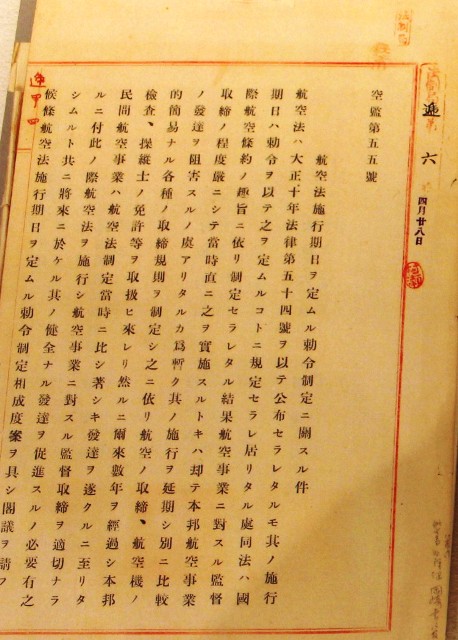 遞 六
四月廿八日
空監第五五號
航空法施行期日ヲ定ムル勅令制定ニ關スル件
航空法ハ大正十年法律第五十四號ヲ以テ公布セラレタルモ其ノ施行
期日ハ勅令ヲ以テ之ヲ定ムルコトニ規定セラレ居リタル處同法ハ國
際航空條約ノ趣旨ニ依リ制定セラレタル結果航空事業ニ對スル監督
取締ノ程度嚴ニシテ當時直ニ之ヲ實施スルトキハ却テ本邦航空事業
ノ發達ヲ阻害スルノ虞アリタルカ爲暫ク其ノ施行ヲ延期シ別ニ比較
的簡易ナル各種ノ取締規則ヲ制定シ之ニ依リ航空ノ取締、航空機ノ
檢査、操縱士ノ免許等ヲ取扱ヒ來レリ然ルニ爾來數年ヲ經過シ本邦
民間航空事業ハ航空法制定當時ニ比シ著シキ發達ヲ遂クルニ至リタ
ルニ付此ノ際航空法ヲ施行シ航空事業ニ對スル監督取締ヲ適切ナラ
シムルト共ニ將來ニ於ケル其ノ健全ナル發達ヲ促進スルノ必要有之
候條航空法施行期日ヲ定ムル勅令制定相成度案ヲ具シ閣議ヲ請フ
遞甲四